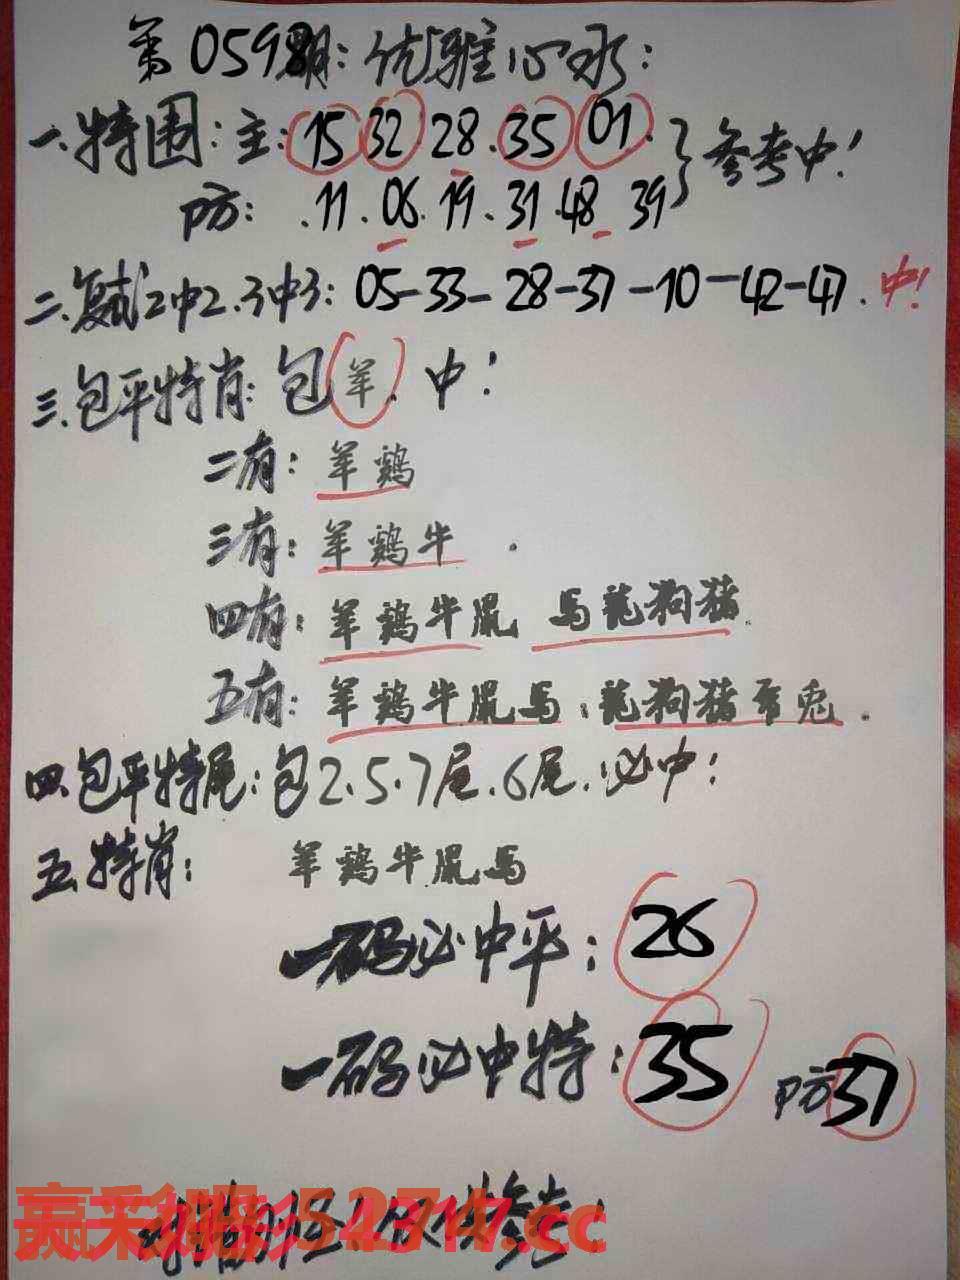 第0598期:优雅心水:
一.特围:主:15 32 28.35 01.
防:.11.06.19.31.48 39
参考中!
二.复试2中2.3中3:05-33-28-37-10-42-47.中!
三.包平特肖:包羊.中!
二有:羊鸡
三有:羊鸡牛.
四有:羊鸡牛鼠 馬龍狗猪
五有:羊鸡牛鼠馬:龍狗猪 兎.
四.包平特尾:包2.5.7尾.6尾.必中!
五.特肖: 羊鸡牛鼠馬
一码必中平:26
一码必中特:35 防37
赢彩吧:52717.cc
参考